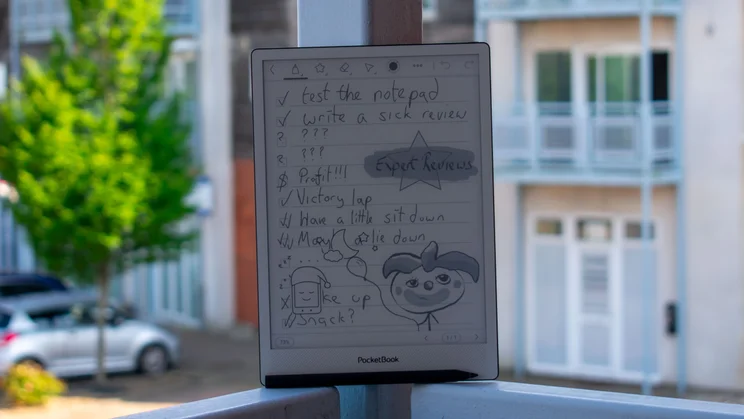 ✓ test the notepad
✓ write a sick review
? ???
? ???
$ Profit!!!
Expert Reviews
✓ Victory lap
✓✓ Have a little sit down
✓✓ lie down
ke up
Snack?
PocketBook